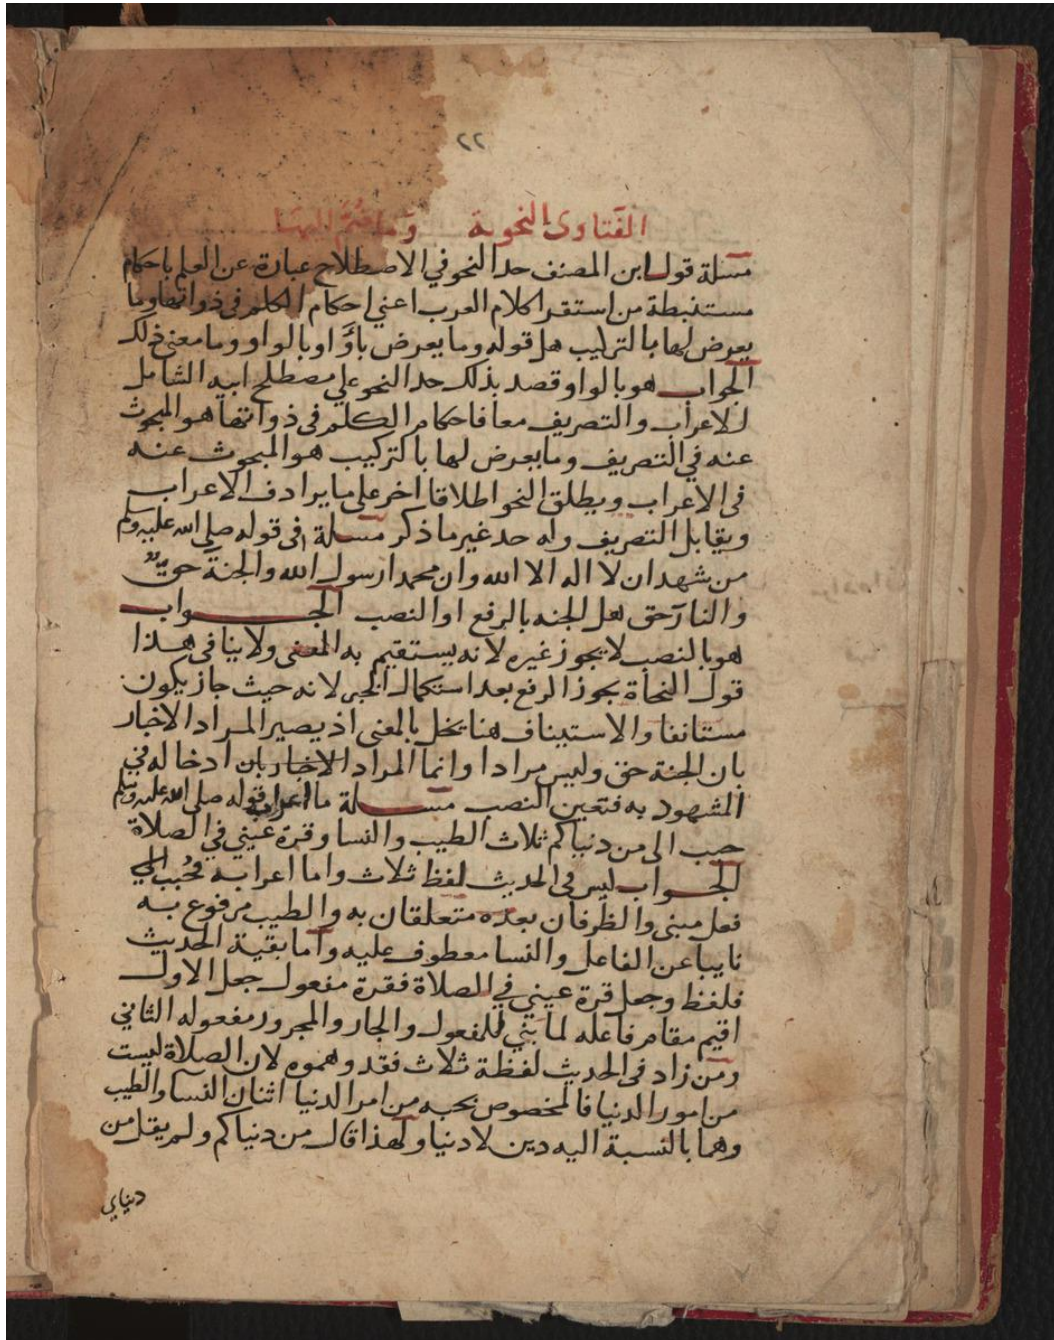 ٢٢
الفتاوى النحوية وما ضم اليها
مسلة قول ابن المصنف حد النحو في الاصطلاح عبارة عن العلم باحكام
مستنبطة من استقرا كلام العرب اعني احكام الكلم في ذواتها وما
يعرض لها بالتركيب هل قوله وما يعرض باو او بالواو وما معنى ذلك
الجواب هو بالواو قصد بذلك حد النحو على مصطلح ابيه الشامل
للاعراب والتصريف معا فاحكام الكلم في ذواتها هو المبحوث
عنه في التصريف وما يعرض لها بالتركيب هو المبحوث عنه
في الاعراب ويطلق النحو اطلاقا اخر على ما يرادف الاعراب
ويقابل التصريف وله حد غير ما ذكر مسلة في قوله صلى الله عليه وسلم
من شهد ان لا اله الا الله وان محمدا رسول الله والجنة حق
والنار حق هل الجنه بالرفع او النصب الجواب
هو بالنصب لا يجوز غيره لانه يستقيم به المعنى ولا ينافي هذا
قول النحاة يجوز الرفع بعد استكمال الخبر لانه حيث جاز يكون
مستانفا والاستيناف هنا يخل بالمعنى اذ يصير المراد الاخبار
بان الجنة حق وليس مرادا وانما المراد الاخبار بان ادخاله في
المشهود به فتعين النصب مسلة ما اعراب قوله صلى الله عليه وسلم
حبب الى من دنياكم ثلاث الطيب والنسا وقرة عيني في الصلاة
الجواب ليس في الحديث لفظ ثلاث واما اعرابه فحُبب الي
فعل مبنى والظرفان بعده متعلقان به والطيب مرفوع به
نايبا عن الفاعل والنسا معطوف عليه واما بقية الحديث
فلفظ وجعل قرة عيني في الصلاة فقرة مفعول جعل الاول
اقيم مقام فاعله لما بُني للمفعول والجار والمجرور مفعوله الثاني
ومن زاد في الحديث لفظة ثلاث فقد وهموه لان الصلاة ليست
من امور الدنيا فالمخصوص بحبه من امر الدنيا اثنان النسا والطيب
وهما بالنسبة اليه دين لا دنيا ولهذا قال من دنياكم ولم يقل من
دنياي